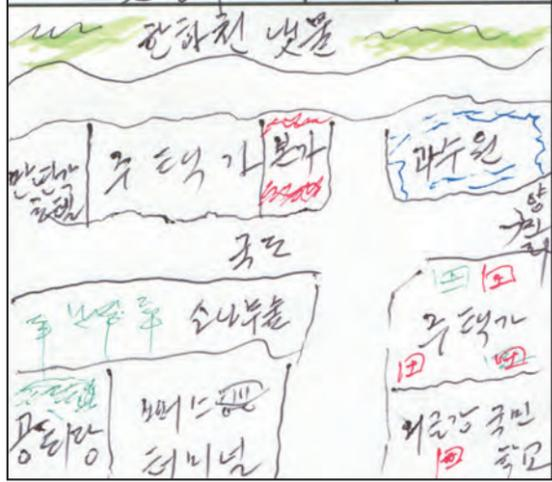 한하천 냇물
주택가
본가
과수원
국도
소나무숲
주택가
공터마당
터미널
외금강 국민
학교